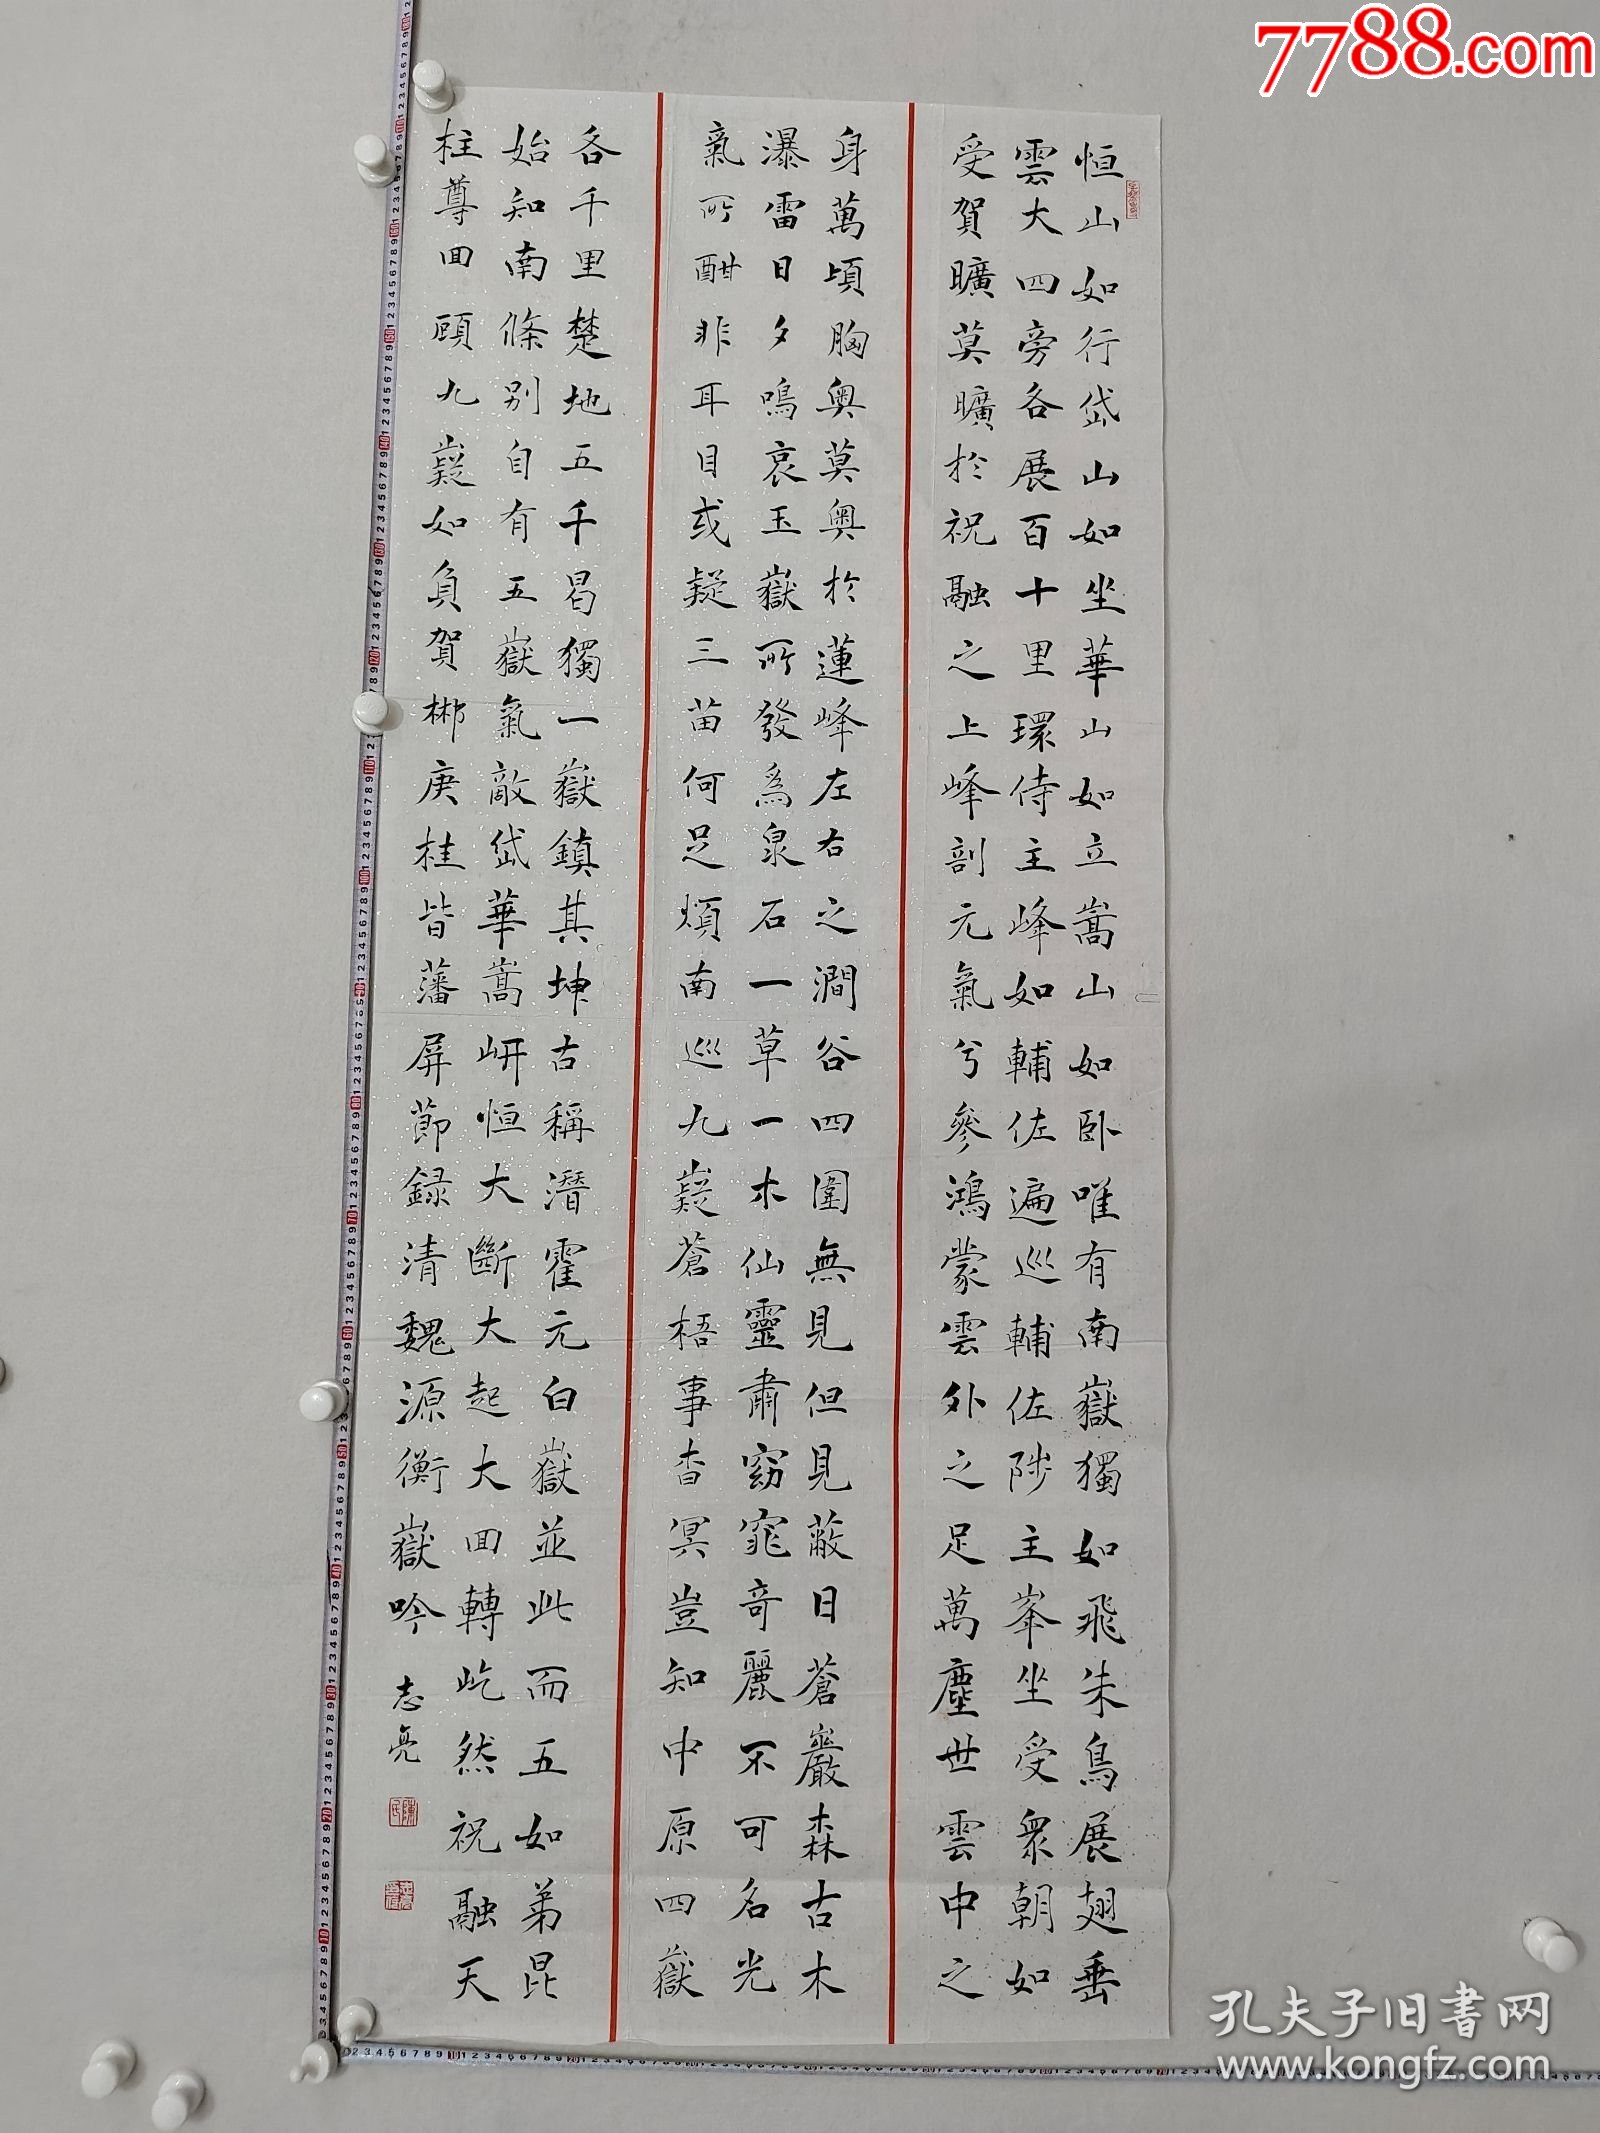 7788.com
恒山如行岱山如坐華山如立嵩山如卧唯有南嶽獨如飛朱鳥展翅垂
雲大四旁各展百十里環侍主峰如輔佐遍巡輔佐陟主峯坐受眾朝如
受賀曠莫曠於祝融之上峰剖元氣兮參鴻蒙雲外之足萬塵世雲中之
身萬頃胸奥莫奥於蓮峰左右之澗谷四圍無見但見蔽日蒼巖森古木
瀑雷日夕鳴哀玉嶽所發為泉石一草一木仙靈肅窈窕奇麗不可名光
氣所酣非耳目或疑三苗何足煩南巡九嶷蒼梧事杳冥豈知中原四嶽
各千里楚地五千曷獨一嶽鎮其坤古稱潛霍元白嶽並此而五如弟昆
始知南條别自有五嶽氣敵岱華嵩岍恒大斷大起大回轉屹然祝融天
柱尊回頤九嶷如負賀郴庚桂皆藩屏節録清魏源衡嶽吟
志亮
孔夫子旧书网
www.kongfz.com